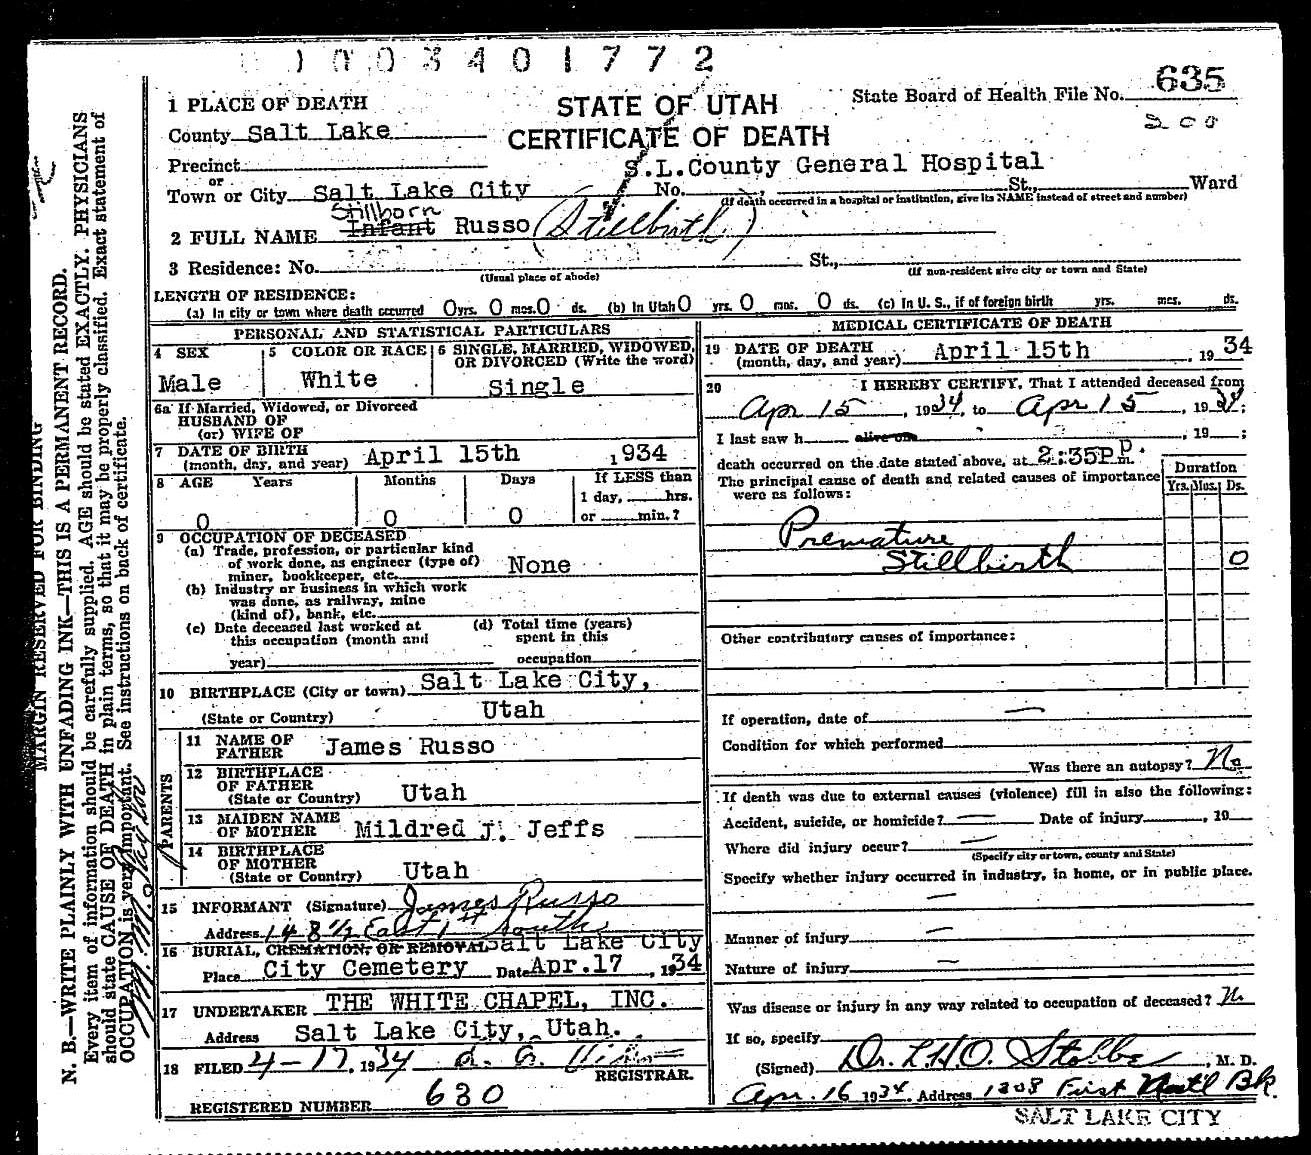 1003401772
1 PLACE OF DEATH
STATE OF UTAH
State Board of Health File No. 635
County Salt Lake
CERTIFICATE OF DEATH
200
Precinct
S.L. County General Hospital
or
Town or City Salt Lake City No. St., Ward
(If death occurred in a hospital or institution, give its NAME instead of street and number)
Stillborn
2 FULL NAME Infant Russo (Stillbirth)
3 Residence: No. St.,
(Usual place of abode) (If non-resident give city or town and State)
LENGTH OF RESIDENCE:
(a) In city or town where death occurred 0 yrs. 0 mos. 0 ds. (b) In Utah 0 yrs. 0 mos. 0 ds. (c) In U. S., if of foreign birth yrs. mos. ds.
PERSONAL AND STATISTICAL PARTICULARS
4 SEX
Male
5 COLOR OR RACE
White
6 SINGLE, MARRIED, WIDOWED, OR DIVORCED (Write the word)
Single
6a If Married, Widowed, or Divorced
HUSBAND OF
(or) WIFE OF
7 DATE OF BIRTH
(month, day, and year) April 15th 1934
8 AGE Years Months Days If LESS than
1 day, hrs.
0 0 0 or min.?
9 OCCUPATION OF DECEASED
(a) Trade, profession, or particular kind
of work done, as engineer (type of)
miner, bookkeeper, etc. None
(b) Industry or business in which work
was done, as railway, mine
(kind of), bank, etc.
(c) Date deceased last worked at
this occupation (month and
year)
(d) Total time (years)
spent in this
occupation
10 BIRTHPLACE (City or town) Salt Lake City,
(State or Country) Utah
PARENTS
11 NAME OF
FATHER James Russo
12 BIRTHPLACE
OF FATHER
(State or Country) Utah
13 MAIDEN NAME
OF MOTHER Mildred J. Jeffs
14 BIRTHPLACE
OF MOTHER
(State or Country) Utah
15 INFORMANT (Signature) James Russo
Address 148 1/2 East 1st South
16 BURIAL, CREMATION, OR REMOVAL Salt Lake City
Place City Cemetery Date Apr. 17, 1934
17 UNDERTAKER THE WHITE CHAPEL, INC.
Address Salt Lake City, Utah.
18 FILED 4-17, 1934
REGISTRAR.
REGISTERED NUMBER 630
MEDICAL CERTIFICATE OF DEATH
19 DATE OF DEATH
(month, day, and year) April 15th, 1934
20 I HEREBY CERTIFY, That I attended deceased from
Apr 15, 1934, to Apr 15, 1934;
I last saw h alive on , 19 ;
death occurred on the date stated above, at 2:35P m.
The principal cause of death and related causes of importance
were as follows:
Duration
Yrs. Mos. Ds.
Premature
Stillbirth 0
Other contributory causes of importance:
If operation, date of —
Condition for which performed
Was there an autopsy? No
If death was due to external causes (violence) fill in also the following:
Accident, suicide, or homicide? — Date of injury , 19
Where did injury occur? —
(Specify city or town, county and State)
Specify whether injury occurred in industry, in home, or in public place.
—
Manner of injury —
Nature of injury —
Was disease or injury in any way related to occupation of deceased? N
If so, specify
(Signed) Dr. L.H.O. Stobbe, M. D.
Apr. 16 1934. Address 1308 First Natl Bk.
SALT LAKE CITY
MARGIN RESERVED FOR BINDING
N. B.—WRITE PLAINLY WITH UNFADING INK—THIS IS A PERMANENT RECORD.
Every item of information should be carefully supplied. AGE should be stated EXACTLY. PHYSICIANS
should state CAUSE OF DEATH in plain terms, so that it may be properly classified. Exact statement of
OCCUPATION is very important. See instructions on back of certificate.